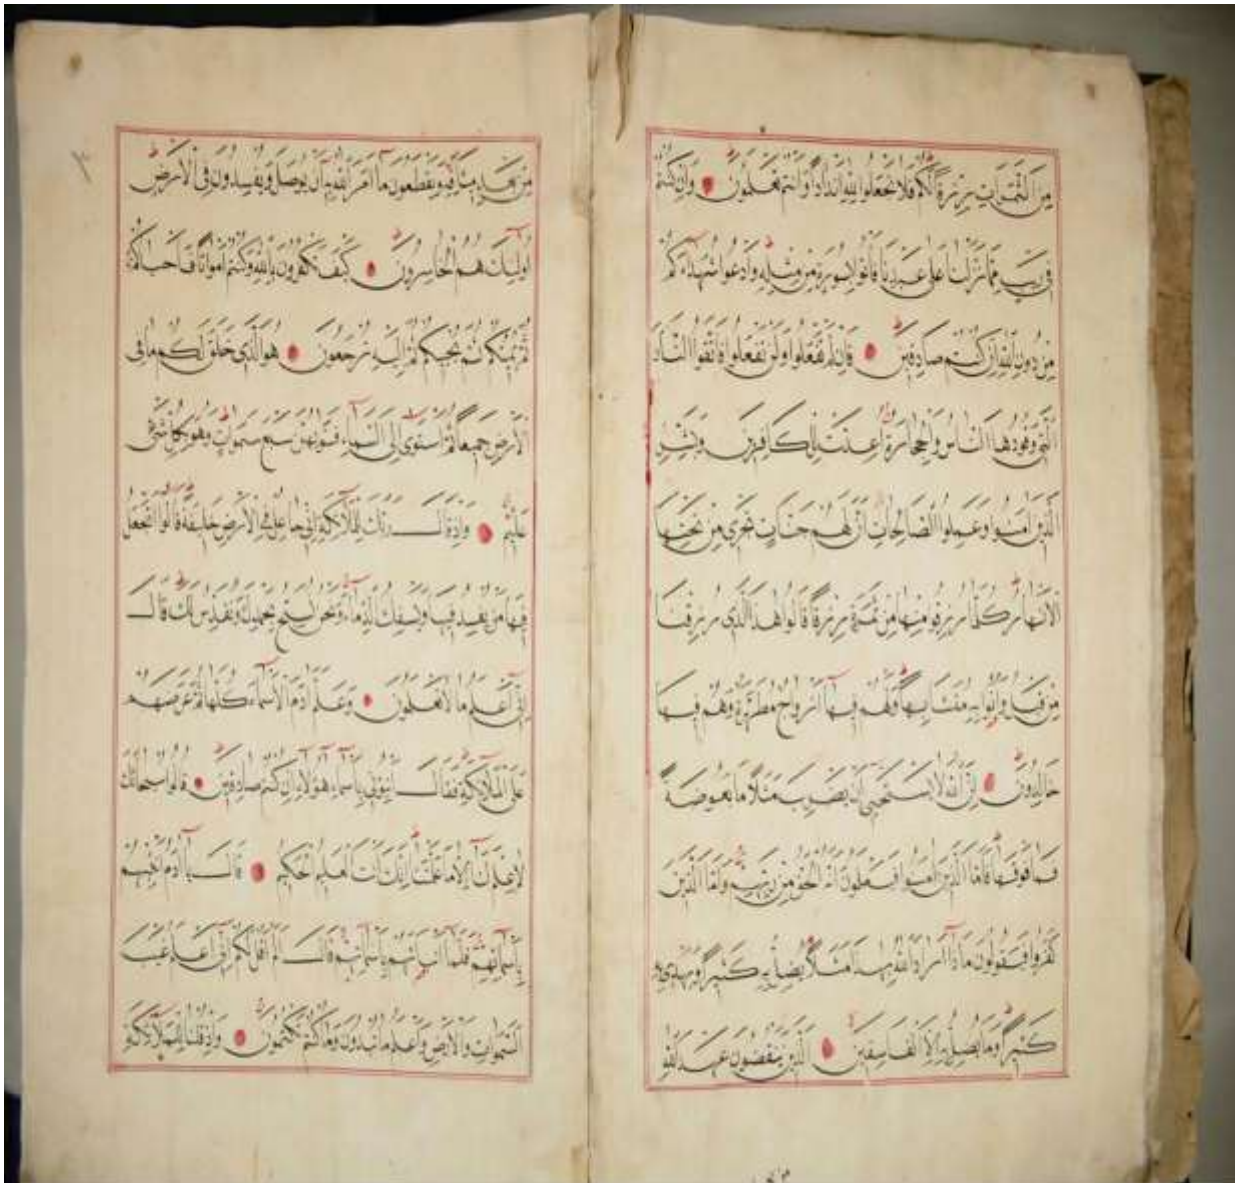 مِنَ الثَّمَرَاتِ رِزْقًا لَكُمْ فَلَا تَجْعَلُوا لِلَّهِ أَنْدَادًا وَأَنْتُمْ تَعْلَمُونَ وَإِنْ كُنْتُمْ
فِي رَيْبٍ مِمَّا نَزَّلْنَا عَلَى عَبْدِنَا فَأْتُوا بِسُورَةٍ مِنْ مِثْلِهِ وَادْعُوا شُهَدَاءَكُمْ
مِنْ دُونِ اللَّهِ إِنْ كُنْتُمْ صَادِقِينَ فَإِنْ لَمْ تَفْعَلُوا وَلَنْ تَفْعَلُوا فَاتَّقُوا النَّارَ
الَّتِي وَقُودُهَا النَّاسُ وَالْحِجَارَةُ أُعِدَّتْ لِلْكَافِرِينَ وَبَشِّرِ
الَّذِينَ آمَنُوا وَعَمِلُوا الصَّالِحَاتِ أَنَّ لَهُمْ جَنَّاتٍ تَجْرِي مِنْ تَحْتِهَا
الْأَنْهَارُ كُلَّمَا رُزِقُوا مِنْهَا مِنْ ثَمَرَةٍ رِزْقًا قَالُوا هَذَا الَّذِي رُزِقْنَا
مِنْ قَبْلُ وَأُتُوا بِهِ مُتَشَابِهًا وَلَهُمْ فِيهَا أَزْوَاجٌ مُطَهَّرَةٌ وَهُمْ فِيهَا
خَالِدُونَ إِنَّ اللَّهَ لَا يَسْتَحْيِي أَنْ يَضْرِبَ مَثَلًا مَا بَعُوضَةً
فَمَا فَوْقَهَا فَأَمَّا الَّذِينَ آمَنُوا فَيَعْلَمُونَ أَنَّهُ الْحَقُّ مِنْ رَبِّهِمْ وَأَمَّا الَّذِينَ
كَفَرُوا فَيَقُولُونَ مَاذَا أَرَادَ اللَّهُ بِهَذَا مَثَلًا يُضِلُّ بِهِ كَثِيرًا وَيَهْدِي بِهِ
كَثِيرًا وَمَا يُضِلُّ بِهِ إِلَّا الْفَاسِقِينَ الَّذِينَ يَنْقُضُونَ عَهْدَ اللَّهِ
مِنْ بَعْدِ مِيثَاقِهِ وَيَقْطَعُونَ مَا أَمَرَ اللَّهُ بِهِ أَنْ يُوصَلَ وَيُفْسِدُونَ فِي الْأَرْضِ
أُولَئِكَ هُمُ الْخَاسِرُونَ كَيْفَ تَكْفُرُونَ بِاللَّهِ وَكُنْتُمْ أَمْوَاتًا فَأَحْيَاكُمْ
ثُمَّ يُمِيتُكُمْ ثُمَّ يُحْيِيكُمْ ثُمَّ إِلَيْهِ تُرْجَعُونَ هُوَ الَّذِي خَلَقَ لَكُمْ مَا فِي
الْأَرْضِ جَمِيعًا ثُمَّ اسْتَوَى إِلَى السَّمَاءِ فَسَوَّاهُنَّ سَبْعَ سَمَوَاتٍ وَهُوَ بِكُلِّ شَيْءٍ
عَلِيمٌ وَإِذْ قَالَ رَبُّكَ لِلْمَلَائِكَةِ إِنِّي جَاعِلٌ فِي الْأَرْضِ خَلِيفَةً قَالُوا أَتَجْعَلُ
فِيهَا مَنْ يُفْسِدُ فِيهَا وَيَسْفِكُ الدِّمَاءَ وَنَحْنُ نُسَبِّحُ بِحَمْدِكَ وَنُقَدِّسُ لَكَ قَالَ
إِنِّي أَعْلَمُ مَا لَا تَعْلَمُونَ وَعَلَّمَ آدَمَ الْأَسْمَاءَ كُلَّهَا ثُمَّ عَرَضَهُمْ
عَلَى الْمَلَائِكَةِ فَقَالَ أَنْبِئُونِي بِأَسْمَاءِ هَؤُلَاءِ إِنْ كُنْتُمْ صَادِقِينَ قَالُوا سُبْحَانَكَ
لَا عِلْمَ لَنَا إِلَّا مَا عَلَّمْتَنَا إِنَّكَ أَنْتَ الْعَلِيمُ الْحَكِيمُ قَالَ يَا آدَمُ أَنْبِئْهُمْ
بِأَسْمَائِهِمْ فَلَمَّا أَنْبَأَهُمْ بِأَسْمَائِهِمْ قَالَ أَلَمْ أَقُلْ لَكُمْ إِنِّي أَعْلَمُ غَيْبَ
السَّمَوَاتِ وَالْأَرْضِ وَأَعْلَمُ مَا تُبْدُونَ وَمَا كُنْتُمْ تَكْتُمُونَ وَإِذْ قُلْنَا لِلْمَلَائِكَةِ